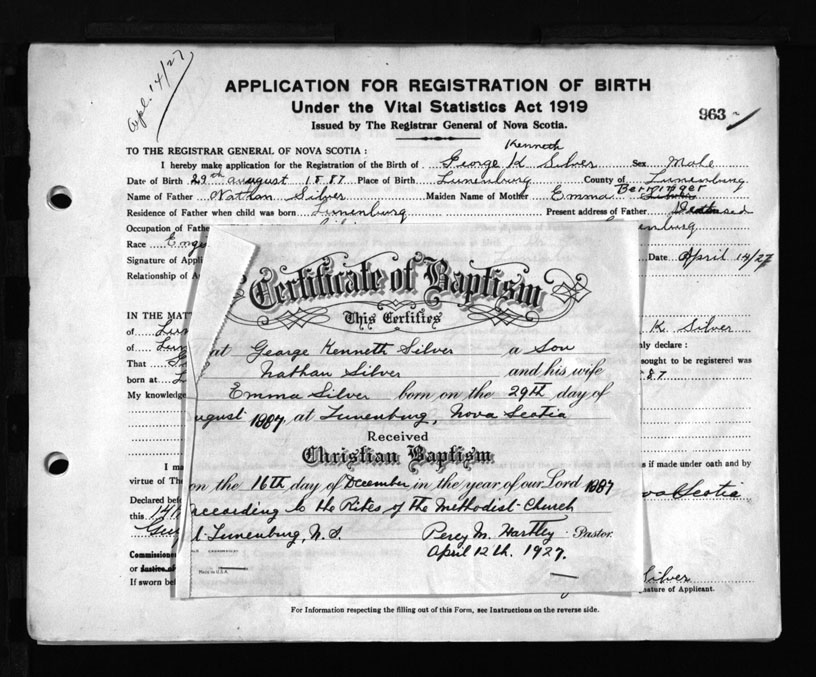 Apl. 14/27
APPLICATION FOR REGISTRATION OF BIRTH
Under the Vital Statistics Act 1919
963
Issued by The Registrar General of Nova Scotia.
TO THE REGISTRAR GENERAL OF NOVA SCOTIA :
Kenneth
I hereby make application for the Registration of the Birth of George K Silver Sex Male
Date of Birth 29th august 1887 Place of Birth Lunenburg County of Lunenburg
Berringer
Name of Father Nathan Silver Maiden Name of Mother Emma
Residence of Father when child was born Lunenburg Present address of Father
Occupation of Fathe
Race
Signature of Appli Date April 14/27
Relationship of A
Certificate of Baptism
This Certifies
IN THE MAT
of K Silver
at George Kenneth Silver a Son
of nly declare :
Nathan Silver and his wife
That ought to be registered was
Emma Silver born on the 29th day of
born at 87
My knowledge
august 1887, at Lunenburg, Nova Scotia
Received
Christian Baptism
I ma s if made under oath and by
on the 16th day of December in the year of our Lord 1887
virtue of Th
according to the Rites of The Methodist Church
Declared befo
this
at Lunenburg, N.S. Percy M. Hartley Pastor.
April 12th. 1927.
Commissione
or
Made in U.S.A.
If sworn bef Silver
nature of Applicant.
For Information respecting the filling out of this Form, see Instructions on the reverse side.